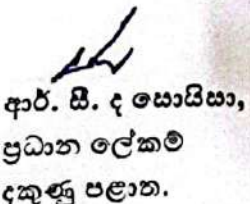 ආර්. සී. ද සොයිසා,
ප්‍රධාන ලේකම්
දකුණු පළාත.